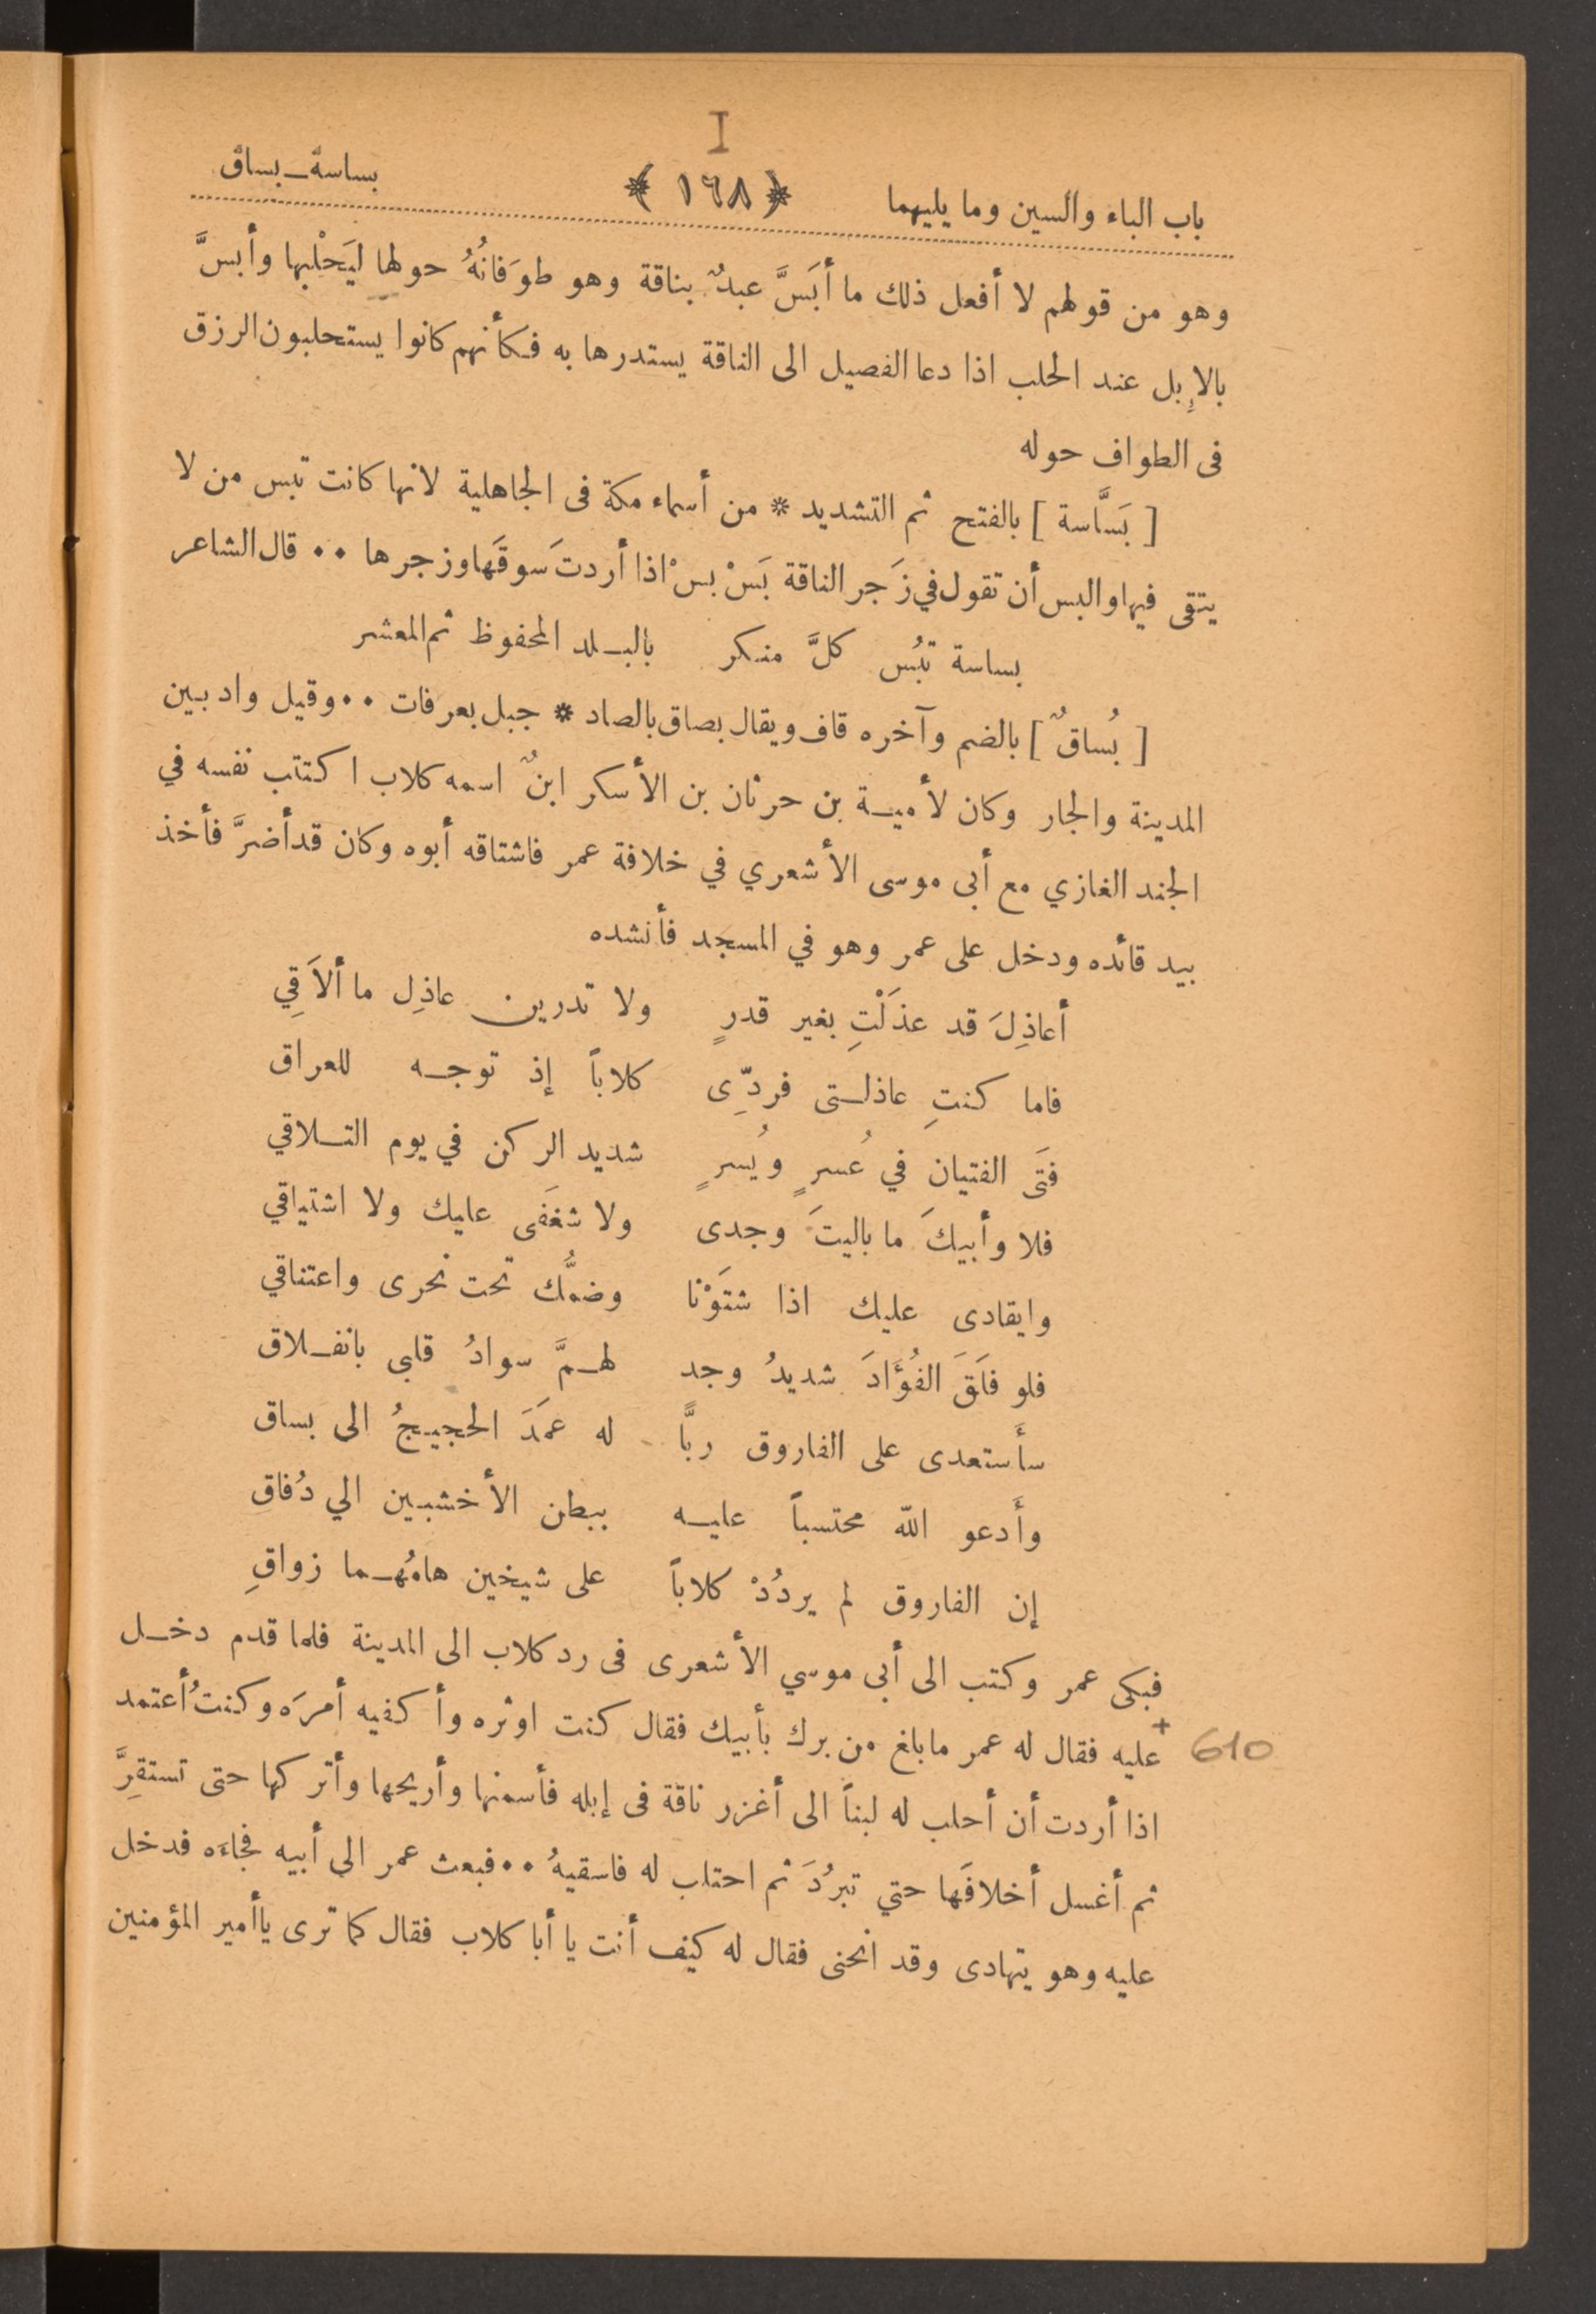 I
باب الباء والسين وما يليهما ﴿ ١٦٨ ﴾ بساسة ــ بساق
وهو من قولهم لا أفعل ذلك ما أبَسَّ عبدٌ بناقة وهو طوَفانُهُ حولها ليَحْلبها وأبسَّ
بالاِبل عند الحلب اذا دعا الفصيل الى الناقة يستدرها به فكأنهم كانوا يستحلبون الرزق
فى الطواف حوله
[ بَسَّاسة ] بالفتح ثم التشديد * من أسماء مكة فى الجاهلية لانها كانت تبس من لا
يتقى فيها والبس أن تقول في زَجر الناقة بَسْ بسْ اذا أردتَ سوقَها وزجرها ٠٠ قال الشاعر
بساسة تبُس كلَّ منكر بالبلد المحفوظ ثم المعشر
[ بُساقٌ ] بالضم وآخره قاف ويقال بصاق بالصاد * جبل بعرفات ٠٠ وقيل واد بين
المدينة والجار وكان لأمية بن حرثان بن الأسكر ابنٌ اسمه كلاب اكتتب نفسه في
الجند الغازي مع أبى موسى الأشعري في خلافة عمر فاشتاقه أبوه وكان قد أضرَّ فأخذ
بيد قائده ودخل على عمر وهو في المسجد فأنشده
أعاذِلَ قد عذَلْتِ بغير قدرٍ ولا تدرين عاذِل ما ألاَقِي
فاما كنتِ عاذلتى فردِّى كلاباً إذ توجه للعراق
فتَى الفتيان في عُسرٍ ويُسرٍ شديد الركن في يوم التلاقي
فلا وأبيكَ ما باليتَ وجدى ولا شغَفى عليك ولا اشتياقي
وايقادى عليك اذا شتَوْنا وضمُّك تحت نحرى واعتناقي
فلو فلَقَ الفُؤَادَ شديدُ وجد لهمَّ سوادُ قلبى بانفلاق
سأستعدى على الفاروق ربًّا له عمَدَ الحجيجُ الى بساق
وأَدعو اللّه محتسباً عليه ببطن الأخشبين الي دُفاقِ
إن الفاروق لم يردُدْ كلاباً على شيخين هامُهما زواقِ
فبكى عمر وكتب الى أبى موسي الأشعرى فى رد كلاب الى المدينة فلما قدم دخل
عليه فقال له عمر مابلغ من برك بأبيك فقال كنت اوثره وأكفيه أمرَه وكنتُ أعتمد + 610
اذا أردت أن أحلب له لبناً الى أغزر ناقة فى إبله فأسمنها وأريحها وأتركها حتى تستقرَّ
ثم أغسل أخلافَها حتي تبرُدَ ثم احتلب له فاسقيهُ ٠٠ فبعث عمر الى أبيه فجاءه فدخل
عليه وهو يتهادى وقد انحنى فقال له كيف أنت يا أبا كلاب فقال كما ترى ياأمير المؤمنين